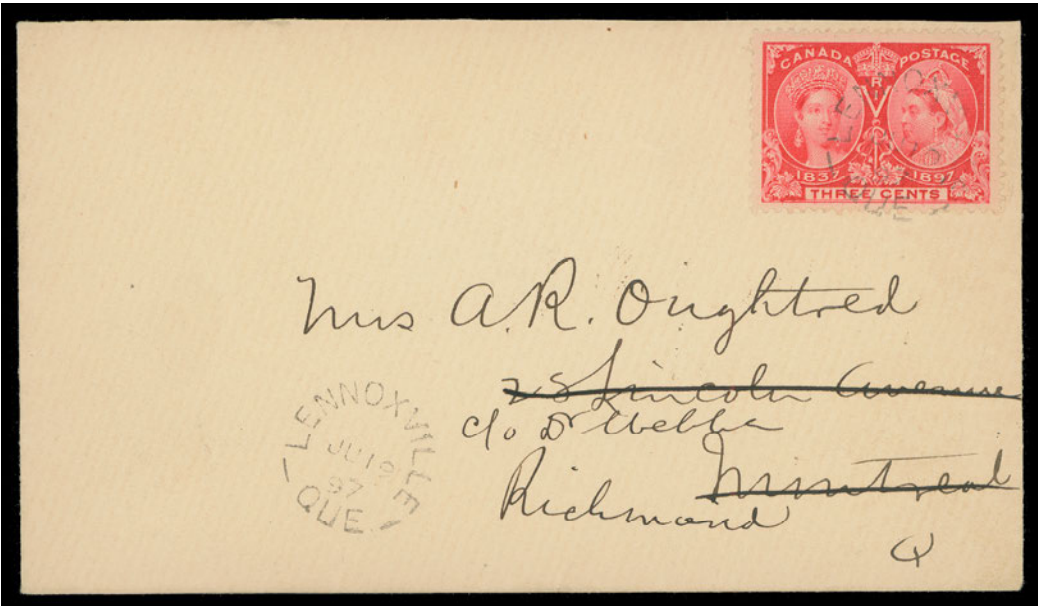 CANADA POSTAGE
R I
V
1837 1897
THREE CENTS
Mrs A.R. Oughtred
28 Lincoln Avenue
c/o Dr Webber
Richmond Montreal
Q
LENNOXVILLE
JU 19
97
QUE